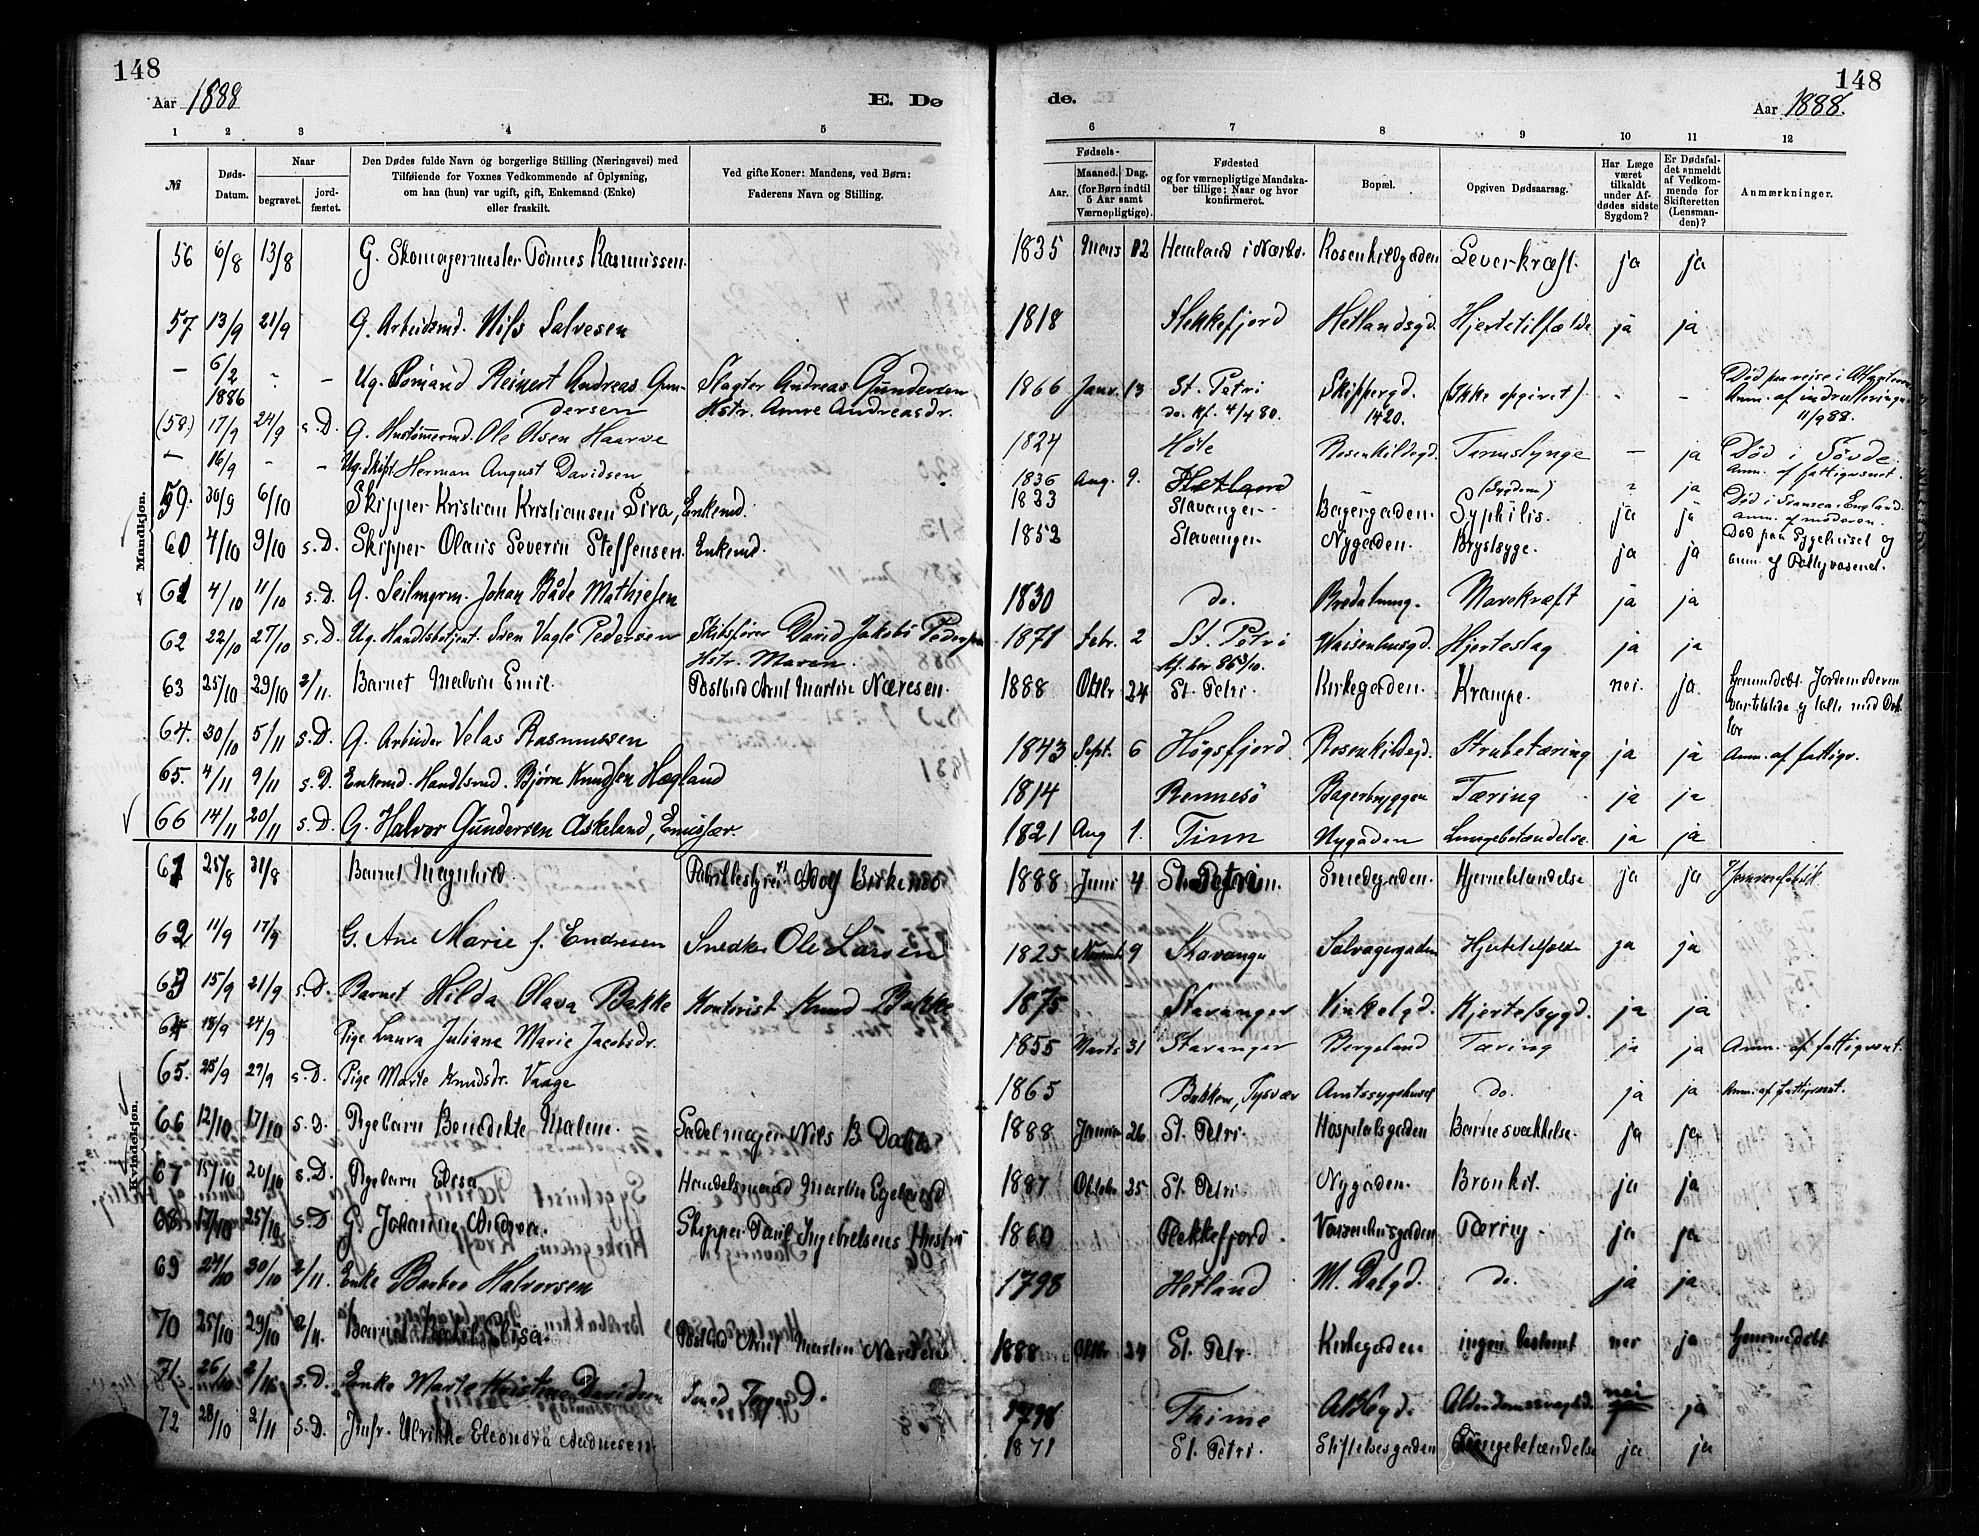 148
148
Aar 1888
E. Dø
de.
Aar 1888.
1 2 3 4 5
6 7 8 9 10 11 12
№
Døds-
Datum.
Naar
begravet.
jord-
fæstet.
Den Dødes fulde Navn og borgerlige Stilling (Næringsvei) med
Tilføiende for Voxnes Vedkommende af Oplysning,
om han (hun) var ugift, gift, Enkemand (Enke)
eller fraskilt.
Ved gifte Koner: Mandens, ved Børn:
Faderens Navn og Stilling.
Fødsels-
Aar.
Maaned. Dag.
(for Børn indtil
5 Aar samt
Værnepligtige).
Fødested
og for værnepligtige Mandska-
ber tillige: Naar og hvor
konfirmeret.
Bopæl.
Opgiven Dødsaarsag.
Har Læge
været
tilkaldt
under Af-
dødes sidste
Sygdom?
Er Dødsfal-
det anmeldt
af Vedkom-
mende for
Skifteretten
(Lensman-
den)?
Anmærkninger.
Mandkjøn.
56 6/8 13/8 G. Skomagermester Tønnes Rasmussen. 1835 12 Rosenkildgaden Leverkræft. ja ja
57 13/9 21/9 G. Arbeidsmd. Nils Salvesen 1818 Flekkefjord Hetlandsgd. Hjertetilfælde. ja ja
— 6/2 1886 - – Ug. Sømand Reinert Andreas Gun-
dersen
Slagter Andreas Gundersen
Hstr. Anne Andreasdr.
1866 Janv. 13 St. Petri
do. Kf. 4/4 80.
Skippergd.
1420.
(Ikke opgivet) - -
11/9 88.
(58.) 17/9 24/9 s.D. G. Hustømmermd. Ole Olsen Haarve 1824 Høle Rosenkildegd. Tarmslynge – ja
— 16/9 - – Ug. Skipt. Herman August Davidsen 1836 Aug. 9. Hetland (Sygdom) ja Død i Søvde.
Anm. af fattigvæsnet.
59. 30/9 6/10 Skipper Kristian Kristiansen Sira, Enkemd. 1833 Stavanger Bagergaden. Syphilis. ja ja Død i Swansea, England.
60 4/10 9/10 s.D. Skipper Olaus Severin Steffensen. Enkemd. 1853 Stavanger Nygaden. Brystsyge. ja ja Død paa Sygehuset og
anm. af
61 4/10 11/10 s.D. G. Seilmgrm. Johan Både Mathiesen 1830 do. Bredalmng. Mavekræft ja ja
62 22/10 27/10 s.D. Ug. Handlsbetjent. Sven Vagle Pedersen Skibsfører David Jakobs Pedersen
Hstr. Maren.
1871 Febr. 2 St. Petri Waisenhusgd. Hjerteslag ja ja
63 25/10 29/10 2/11. Barnet Malvin Emil. Postbud Arnt Martin Næresen. 1888 Oktbr 24 St. Petri. Kirkegaden. Krampe. nei. ja Hjemmedøbt. Jordemoderen
64. 30/10 5/11 s.D. G. Arbeider Velas Rasmussen 1843 Sept. 6 Høgsfjord. Rosenkildegd. Strubetæring ja ja Anm. af fattigv.
65. 4/11 9/11 s.D. Enkemd. Handlsmd. Bjørn Knudsen Hægland 1814 Rennesö Bagerbryggen Tæring ja ja
66 14/11 20/11 s.D. G. Halvor Gundersen Askeland, Emissær. 1821 Aug 1. Tinn Nygaden Lungebetændelse. ja ja
Kvindekjøn.
61 25/8 31/8 Barnet Magnhild. Fabrikbestyrer Adolf Birkenes 1888 Juni 4 St. Petri Smedegaden. Hjernebetændelse ja ja
62 11/9 17/9 G. Ane Marie f. Endresen Snedker Ole Larsen 1825 Novemb 9 Stavanger Solvagergaden Hjertetilfælde ja ja
63 15/9 21/9 s.D. Barnet Hilda Olava Bakke Kontorist Knud Bakke 1875 Stavanger Vinkelgd. Kjertelsygd. ja ja
64 18/9 24/9 Pige Laura Juliane Marie Jacobsdr. 1855 Marts 31 Stavanger Bergeland Tæring ja ja Anm. af fattigvsnt.
65. 25/9 29/9 s.D. Pige Marte Knudsdr. Vaage 1865 Bakken, Tysvær Amtssygehuset do. ja ja Anm. af fattigvsnt.
66 12/10 17/10 s.D. Pigebarn Benedikte Malene. Sadelmager Nils B. Dahle 1888 Januar 26 St. Petri. Hospitalsgaden Barnesvækkelse. ja ja
67 15/10 20/10 s.D. Pigebarn Elisa Handelsmand Martin Egeland 1887 Oktober 25 St. Petri. Nygaden. Bronkit. ja ja
68 17/10 25/10 s.D G. Johanne Andrea. Skipper Paul Ingebretsens Hustru 1860 Flekkefjord. Vaisenhusgaden Tæring. ja ja
69 24/10 30/10 2/11. Enke Barbro Halvorsen 1798 Hetland M. Dalgd. do. ja ja
70 25/10 29/10 2/11. Barnet Elisa. Postbud Arnt Martin Næresen 1888 Oktbr 24 St. Petri Kirkegaden ingen bestemt nei ja Hjemmedøbt
71. 26/10 2/11 s.D. Enke Marta Kristine Davidsen Smed D. 1798 Thime nei
ja ja
72 28/10 2/11 s.D. Jmfr. Ulrikke Eleonora Aadnesen. 1871 St. Petri. Stiftelsesgaden Lungebetændelse ja ja